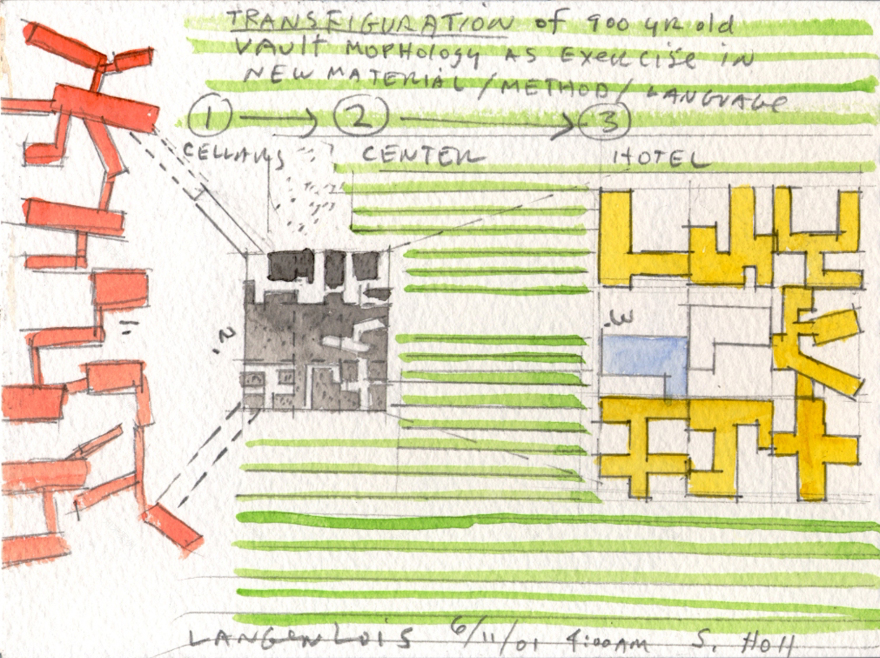 TRANSFIGURATION of 900 yR old
VAULT MOPHOLOGY AS Exercise in
NEW MATERIAL / METHOD / LANGUAGE
1 → 2 → 3
CELLARS CENTER HOTEL
2.
3.
LANGENLOIS 6/11/01 4:00AM S. Holl